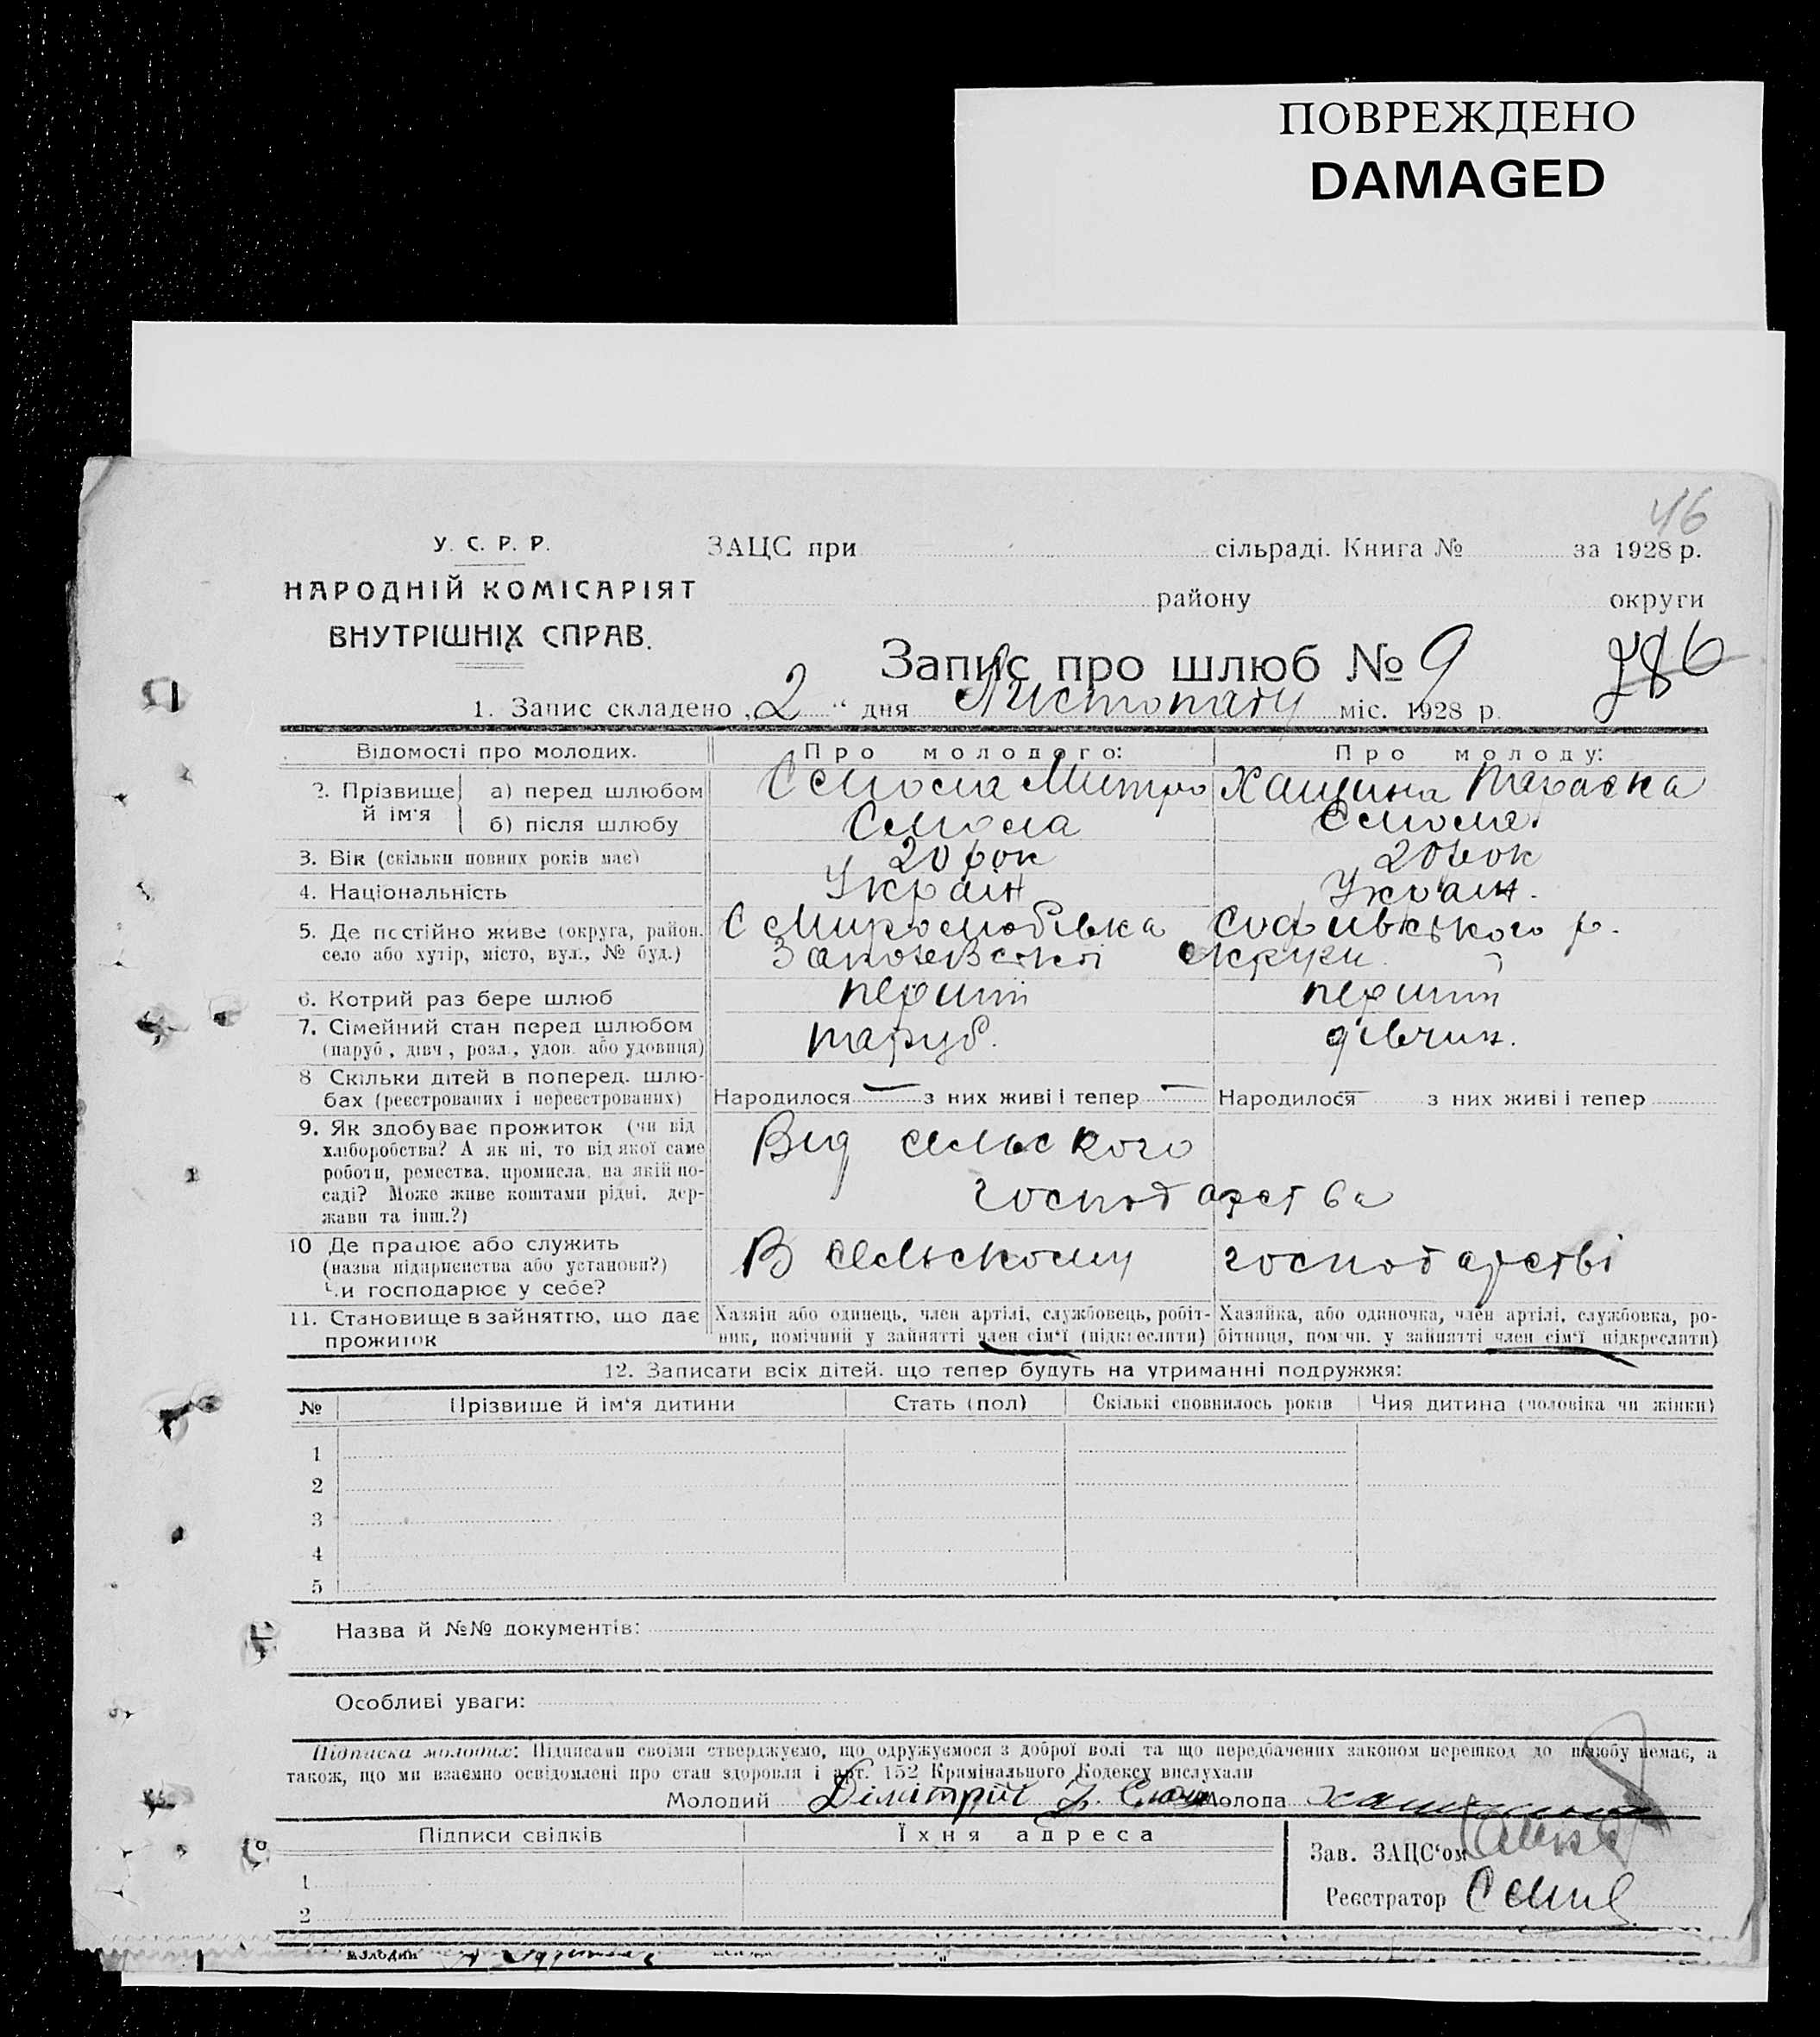 ПОВРЕЖДЕНО
DAMAGED
46
У. С. Р. Р.
НАРОДНІЙ КОМІСАРІЯТ
ВНУТРІШНІХ СПРАВ.
ЗАЦС при сільраді. Книга № за 1928 р.
району округи
Запис про шлюб № 9
786
1. Запис складено „2“ дня Листопаду міс. 1928 р.
Відомості про молодих. Про молодого: Про молоду:
2. Прізвище й ім'я
а) перед шлюбом Митро Хащина
б) після шлюбу
3. Вік (скільки повних років має) 20 рок 20 рок
4. Національність Україн Україн.
5. Де постійно живе (округа, район, село або хутір, місто, вул., № буд.) С Миролюбівка Софиівського р.
округи
6. Котрий раз бере шлюб перший перший
7. Сімейний стан перед шлюбом (паруб., дівч., розл., удов. або удовиця) паруб. дівчин.
8 Скільки дітей в поперед. шлюбах (реєстрованих і нереєстрованих) Народилося — з них живі і тепер — Народилося — з них живі і тепер
9. Як здобуває прожиток (чи від
хліборобства? А як ні, то від якої саме
роботи, ремества, промисла, на якій по-
саді? Може живе коштами рідні, дер-
жави та інш.?)
Від сельского
господарства
10 Де працює або служить
(назва підприємства або установи?)
Чи господарює у себе?
В сельскому господарстві
11. Становище в зайняттю, що дає
прожиток
Хазяїн або одинець, член артілі, службовець, робіт-
ник, помічний у зайнятті член сім'ї (підкреслити)
Хазяйка, або одиночка, член артілі, службовка, ро-
бітниця, помічн. у зайнятті член сім'ї підкреслити)
12. Записати всіх дітей, що тепер будуть на утриманні подружжя:
№ Прізвище й ім'я дитини Стать (пол) Скількі сповнилось років Чия дитина (чоловіка чи жінки)
1
2
3
4
5
Назва й №№ документів:
Особливі уваги:
Підписка молодих: Підписами своїми стверджуємо, що одружуємося з доброї волі та що передбачених законом перешкод до шлюбу немає, а
також, що ми взаємно освідомлені про стан здоровля і арт. 152 Кримінального Кодексу вислухали
Молодий Молода
Підписи свідків Їхня адреса
Зав. ЗАЦС'ом
1
Реєстратор
2
молодий